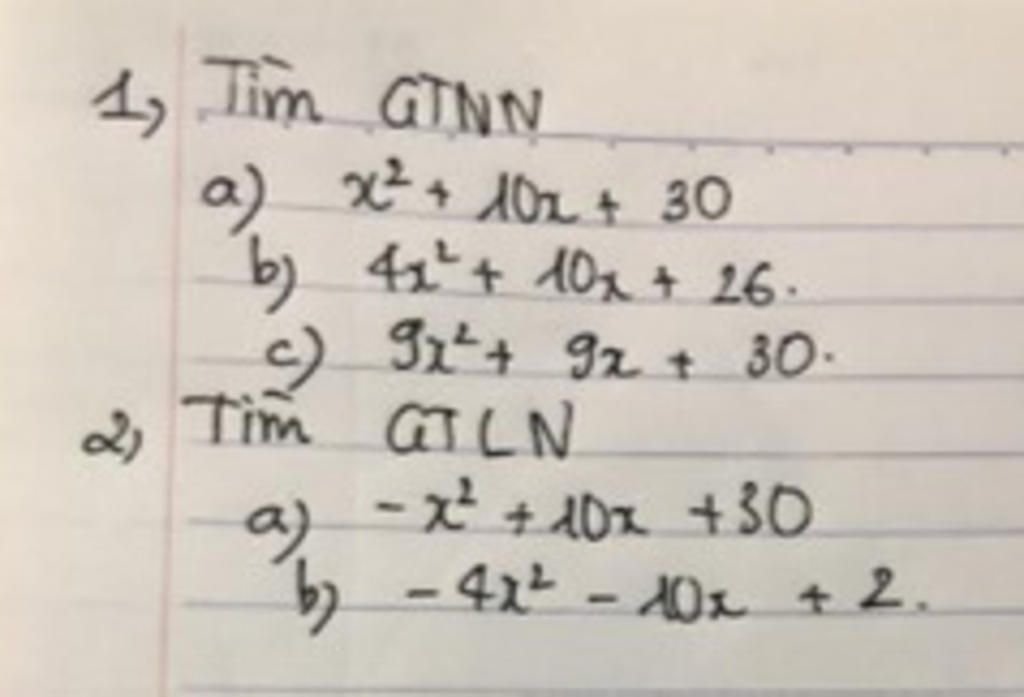 1, Tìm GTNN
a) x² + 10x + 30
b) 4x² + 10x + 26.
c) 9x² + 9x + 30.
2, Tìm GTLN
a) -x² + 10x + 30
b) - 4x² - 10x + 2.